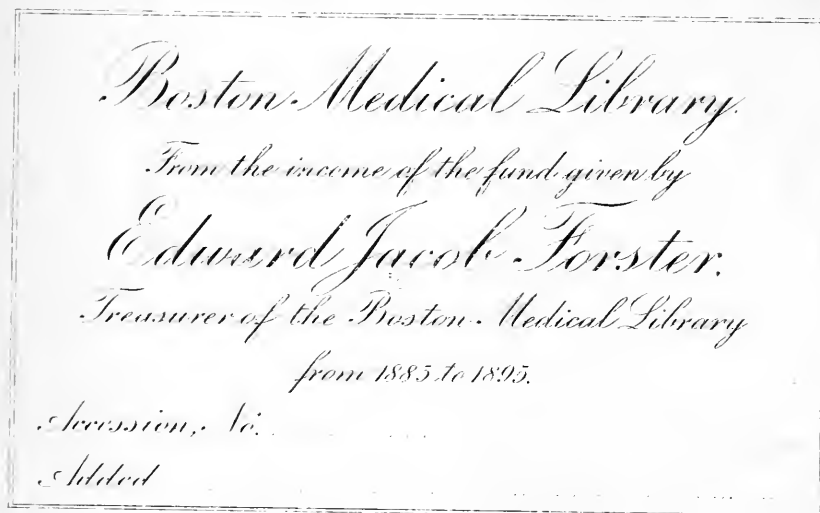 Boston Medical Library.
From the income of the fund given by
Edward Jacob Forster.
Treasurer of the Boston Medical Library
from 1885 to 1895.
Accession, No.
Added